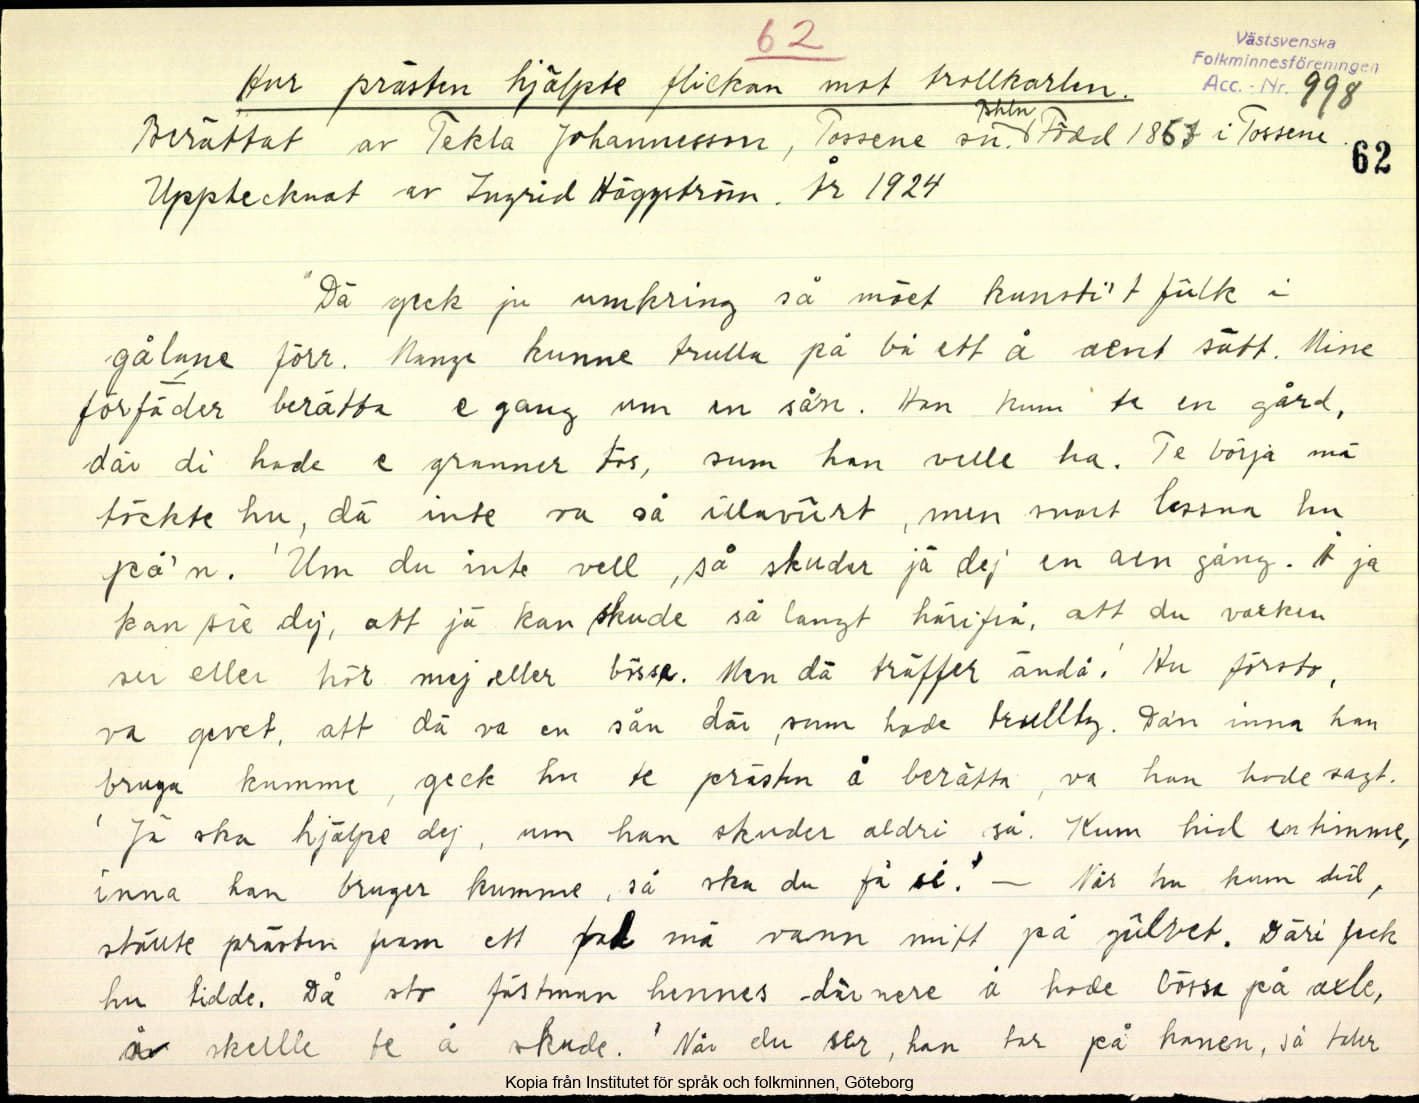 62
Västsvenska
Folkminnesföreningen
Acc.-Nr. 998
Hur prästen hjälpte flickan mot trollkarlen.
Berättat av Tekla Johannesson, Tossene sn. Bhln Född 1867 i Tossene.
62
Upptecknat av Ingrid Häggström. År 1924
"Dä geck ju umkring så möet kunsti't fülk i
gålane förr. Mange kunne trulla på bå ett å aent sätt. Mine
förfäder berätta e gang um en så'n. Han kum te en gård,
där di hade e granner tös, sum han velle ha. Te börja mä
töckte hu, dä inte va så illavürt, men snart lessna hu
på'n. 'Um du inte vell, så skuder jä dej en aen gång. Å ja
kan sie dej, att jä kan skude så langt härifrå, att du varken
ser eller hör mej eller bössa. Men dä träffer ändå.' Hu försto,
va gevet, att dä va en sån där, sum hade trulltyg. Dan inna han
bruga kumme, geck hu te prästen å berätta, va han hade sagt.
'Jä ska hjälpe dej, um han skuder aldri så. Kum hid en timme,
inna han bruger kumme, så ska du få si.' — När hu kum did,
ställte prästen fram ett fad mä vann mitt på gülvet. Däri feck
hu tidde. Då sto fästman hennes därnere å hade bössa på axle,
å skulle te å skude. 'När du ser, han tar på hanen, så
Kopia från Institutet för språk och folkminnen, Göteborg